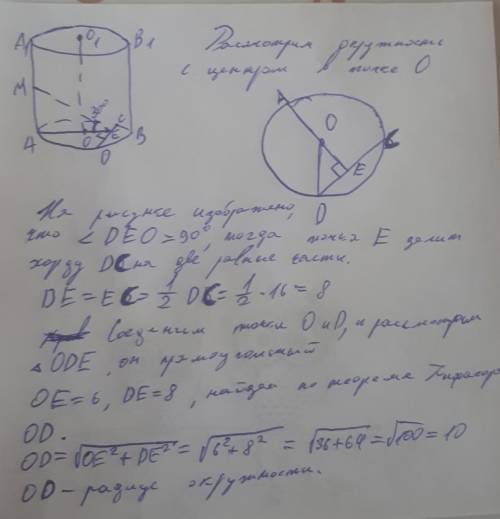 A₁ O₁ B₁
M
A O E C B
D
Рассмотрим окружность
с центром в точке O
A O C E D
На рисунке изображено,
что ∠DEO = 90°, тогда точка E делит
хорду DC на две равные части.
DE = EC = 1/2 DC = 1/2 · 16 = 8
Соединим точки O и D, и рассмотрим
△ODE, он прямоугольный
OE = 6, DE = 8, найдем по теореме Пифагора
OD.
OD = √(OE² + DE²) = √(6² + 8²) = √(36 + 64) = √100 = 10
OD – радиус окружности.